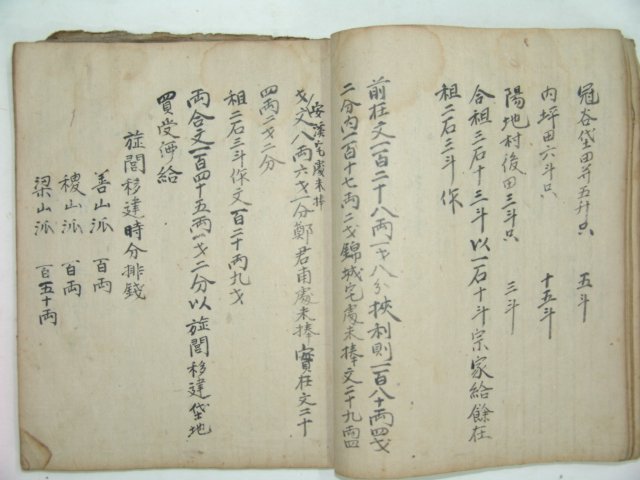 冠谷垈田幷五升只 五斗
內坪田六斗只 十五斗
陽地村後田三斗只 三斗
合租三石十三斗以一石十斗宗家給餘在
租二石三斗作
前在文一百二十八兩一戔八分挾利則一百八十兩四戔
二分內一百十七兩二戔錦城宅處未捧文二十九兩四
戔安溪宅處未捧文八兩六戔一分鄭君甫處未捧實在文二十
四兩二戔二分
租二石三斗作文百二十兩九戔
兩合文一百四十五兩一戔二分以旌閭移建垈地
買受價給
旌閭移建時分排錢
善山派 百兩
稷山派 百兩
梁山派 百五十兩